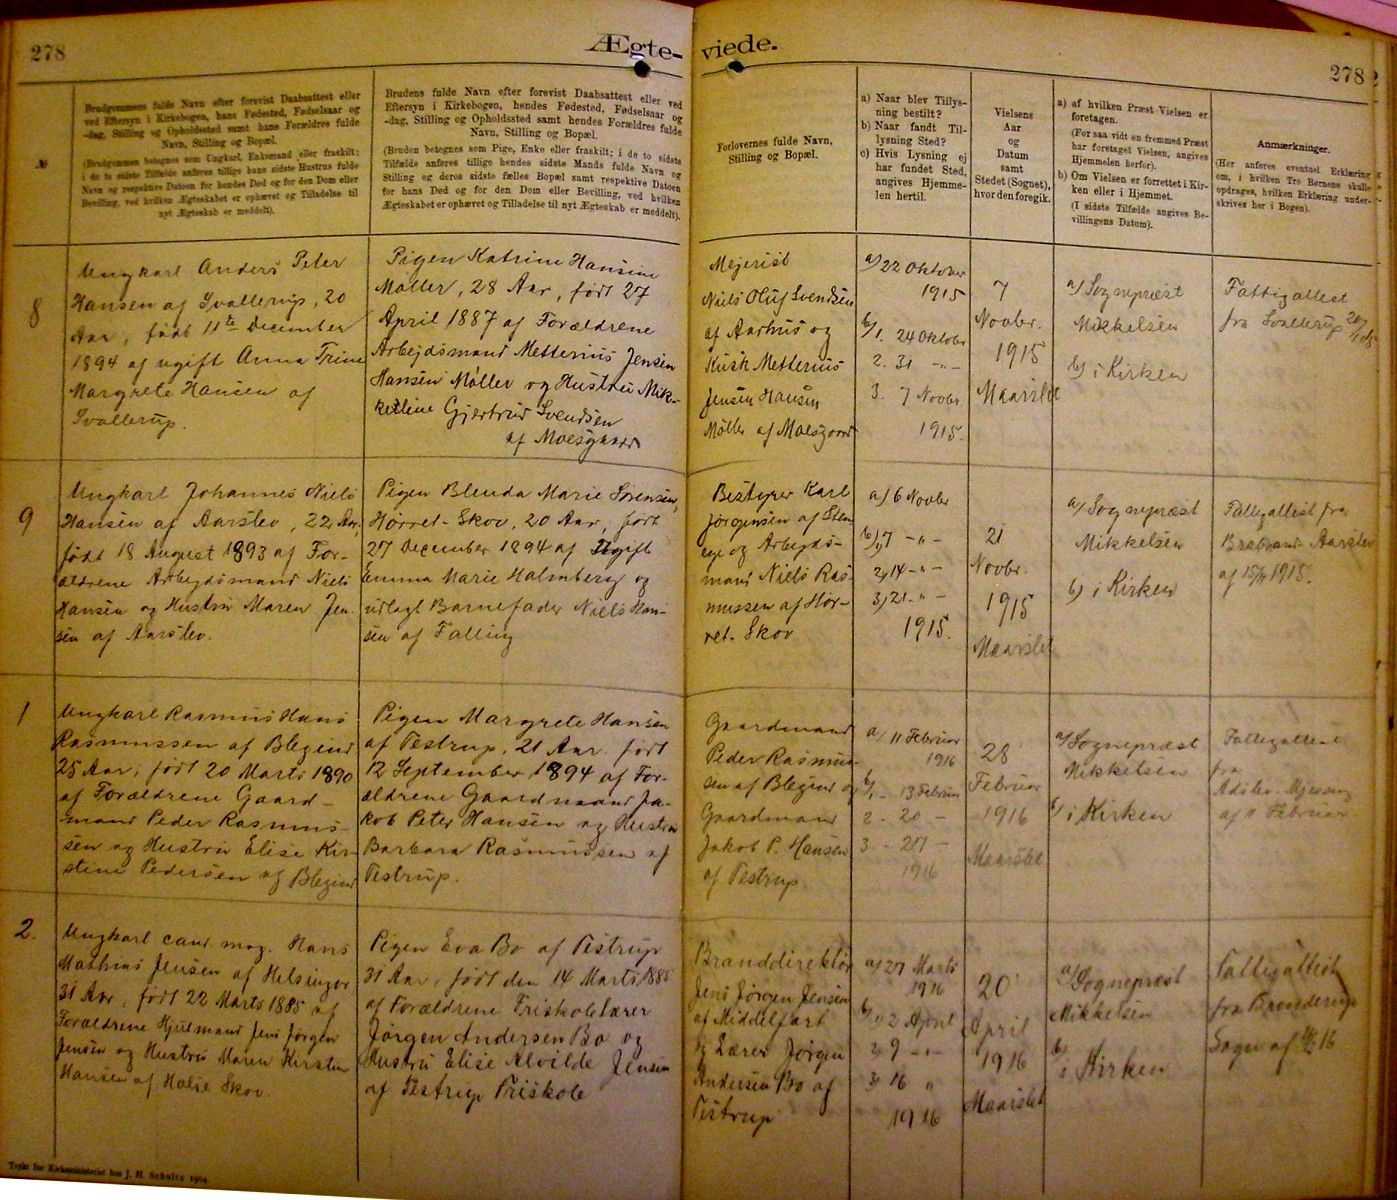 278
Ægte-
viede.
278
№
Brudgommens fulde Navn efter forevist Daabsattest eller
ved Eftersyn i Kirkebogen, hans Fødested, Fødselsaar og
-dag, Stilling og Opholdssted samt hans Forældres fulde
Navn, Stilling og Bopæl.
(Brudgommen betegnes som Ungkarl, Enkemand eller fraskilt;
i de to sidste Tilfælde anføres tillige hans sidste Hustrus fulde
Navn og respektive Datoen for hendes Død og for den Dom eller
Bevilling, ved hvilken Ægteskabet er ophævet og Tilladelse til
nyt Ægteskab er meddelt).
Brudens fulde Navn efter forevist Daabsattest eller ved
Eftersyn i Kirkebogen, hendes Fødested, Fødselsaar og
-dag, Stilling og Opholdssted samt hendes Forældres fulde
Navn, Stilling og Bopæl.
(Bruden betegnes som Pige, Enke eller fraskilt; i de to sidste
Tilfælde anføres tillige hendes sidste Mands fulde Navn og
Stilling og deres sidste fælles Bopæl samt respektive Datoen
for hans Død og for den Dom eller Bevilling, ved hvilken
Ægteskabet er ophævet og Tilladelse til nyt Ægteskab er meddelt).
Forlovernes fulde Navn,
Stilling og Bopæl.
a) Naar blev Tillys-
ning bestilt?
b) Naar fandt Til-
lysning Sted?
c) Hvis Lysning ej
har fundet Sted,
angives Hjemme-
len hertil.
Vielsens
Aar
og
Datum
samt
Stedet (Sognet),
hvor den foregik.
a) af hvilken Præst Vielsen er
foretagen.
(For saa vidt en fremmed Præst
har foretaget Vielsen, angives
Hjemmelen herfor).
b) Om Vielsen er forrettet i Kir-
ken eller i Hjemmet.
(I sidste Tilfælde angives Be-
villingens Datum).
Anmærkninger.
(Her anføres eventuel Erklæring
om, i hvilken Tro Børnene skulle
opdrages, hvilken Erklæring under-
skrives her i Bogen).
8
Ungkarl Anders Peter
Hansen af Svallerup, 20
Aar, født 11te December
1894 af ugift Anna Trine
Margrete Hansen af
Svallerup.
Pigen Katrine Hansine
Møller, 28 Aar, født 27
April 1887 af Forældrene
Arbejdsmand Metterius Jensen
Hansen Møller og Hustru Mik-
keline Gjertrud Svendsen
af Moesgaard
Mejerist
Niels Oluf Svendsen
af Aarhus og
Kusk Metterius
Jensen Hansen
Møller af Moesgaard
a) 22 Oktober
1915
b) 1. 24 Oktober
2. 31 -"-
3. 7 Novbr.
1915.
7
Novbr.
1915
Maarslet
a) Sognepræst
Mikkelsen
b) i Kirken
Fattigattest
fra Svallerup
9
Ungkarl Johannes Niels
Hansen af Aarslev, 22 Aar,
født 18 August 1893 af For-
ældrene Arbejdsmand Niels
Hansen og Hustru Maren Jen-
sen af Aarslev.
Pigen Blenda Marie Sørensen,
Hørret-Skov, 20 Aar, født
27 December 1894 af Ugift
Emma Marie Halmberg og
udlagt Barnefader Niels Han-
sen af Falling
Bestyrer Karl
Jørgensen af Sten-
ege og Arbejds-
mand Niels Ras-
mussen af Hør-
ret-Skov
a) 6 Novbr
b) 1) 7 -"-
2) 14 -"-
3) 21 -"-
1915.
21
Novbr.
1915
Maarslet
a) Sognepræst
Mikkelsen
b) i Kirken
Fattigattest fra
Brabrand-Aarslev
af 15/11 1915.
1
Ungkarl Rasmus Hans
Rasmussen af Blegind
25 Aar, født 20 Marts 1890
af Forældrene Gaard-
mand Peder Rasmus-
sen og Hustru Elise Kir-
stine Pedersen af Blegind
Pigen Margrete Hansen
af Testrup, 21 Aar født
12 September 1894 af For-
ældrene Gaardmand Ja-
kob Peter Hansen og Hustru
Barbara Rasmussen af
Testrup.
Gaardmand
Peder Rasmus-
sen af Blegind og
Gaardmand
Jakob P. Hansen
af Testrup
a) 11 Februar
1916
b) 1 - 13 Februar
2 - 20 -
3 - 27 -
1916
28
Februar
1916
Maarslet
a) Sognepræst
Mikkelsen
b) i Kirken
Fattigattest
fra
Adslev-Mjesing
af 11 Februar
2.
Ungkarl cand. mag. Hans
Mathias Jensen af Helsingør
31 Aar, født 22 Marts 1885 af
Forældrene Hjulmand Jens Jørgen
Jensen og Hustru Maren Kirstine
Hansen af Halse Skov
Pigen Eva Bo af Testrup
31 Aar, født den 14 Marts 1885
af Forældrene Friskolelærer
Jørgen Andersen Bo og
Hustru Elise Alvilde Jensen
af Testrup Friskole
Branddirektør
Jens Jørgen Jensen
af Middelfart
og Lærer Jørgen
Andersen Bo af
Testrup
a) 27 Marts
1916
b) 1) 2 April
2) 9 -"-
3) 16 "
1916
20
April
1916
Maarslet
a) Sognepræst
Mikkelsen
b) i Kirken
Fattigattest
fra Brønderup
Sogn af 16
Trykt for Kirkeministeriet hos J. H. Schultz 1904.